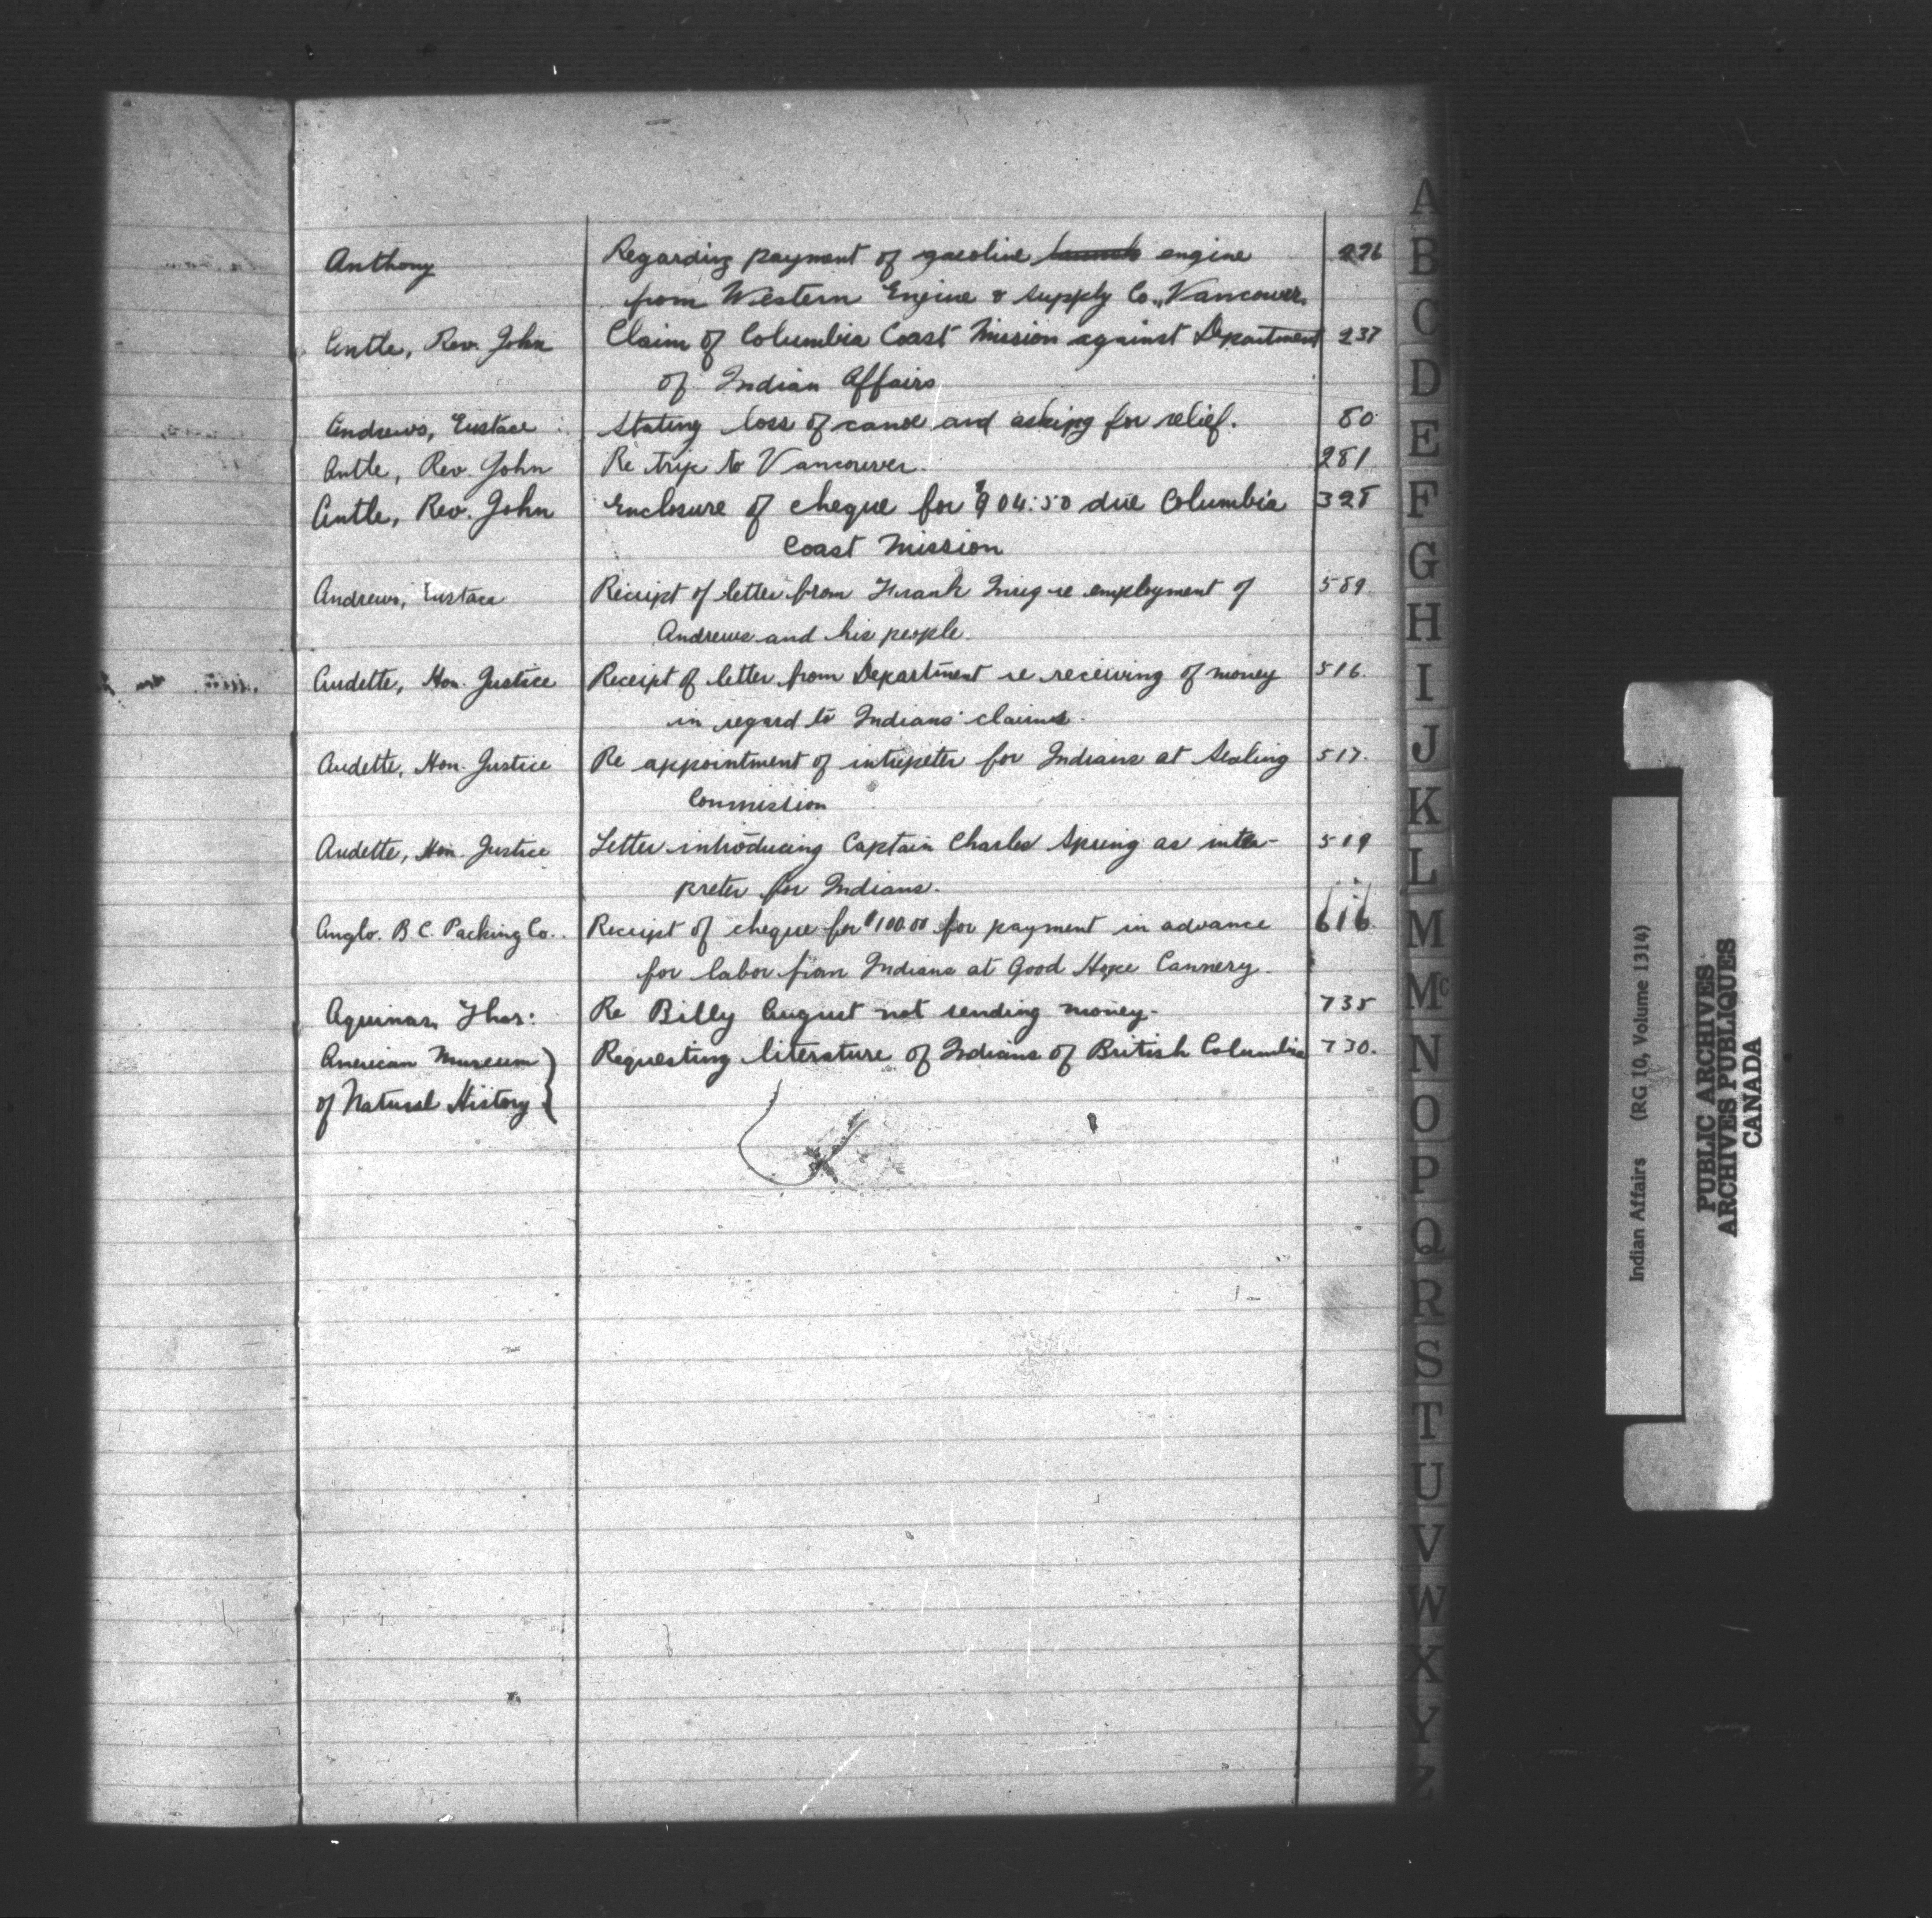 Anthony Regarding payment of gasoline launch engine 226
from Western Engine & Supply Co., Vancouver.
Antle, Rev. John Claim of Columbia Coast Mission against Department 237
of Indian Affairs
Andrews, Eustace Stating loss of canoe and asking for relief. 80
Antle, Rev. John Re trip to Vancouver. 281
Antle, Rev. John Enclosure of cheque for $904.50 due Columbia 328
Coast Mission
Andrews, Eustace Receipt of letter from Frank re employment of 589
Andrews and his people.
Audette, Hon. Justice Receipt of letter from Department re receiving of money 516
in regard to Indians' claims.
Audette, Hon. Justice Re appointment of intrepeter for Indians at Sealing 517.
Commission
Audette, Hon. Justice Letter introducing Captain Charles Spring as inter- 519
preter for Indians.
Anglo. B.C. Packing Co. Receipt of cheque for $100.00 for payment in advance 616
for labor from Indians at Good Hope Cannery.
Aquinas, Thos: Re Billy August not sending money. 735
American Museum Requesting literature of Indians of British Columbia 730.
of Natural History
A
B
C
D
E
F
G
H
I
J
K
L
M
Mc
N
O
P
Q
R
S
T
U
V
W
X
Y
Z
Indian Affairs (RG 10, Volume 1314)
PUBLIC ARCHIVES
ARCHIVES PUBLIQUES
CANADA